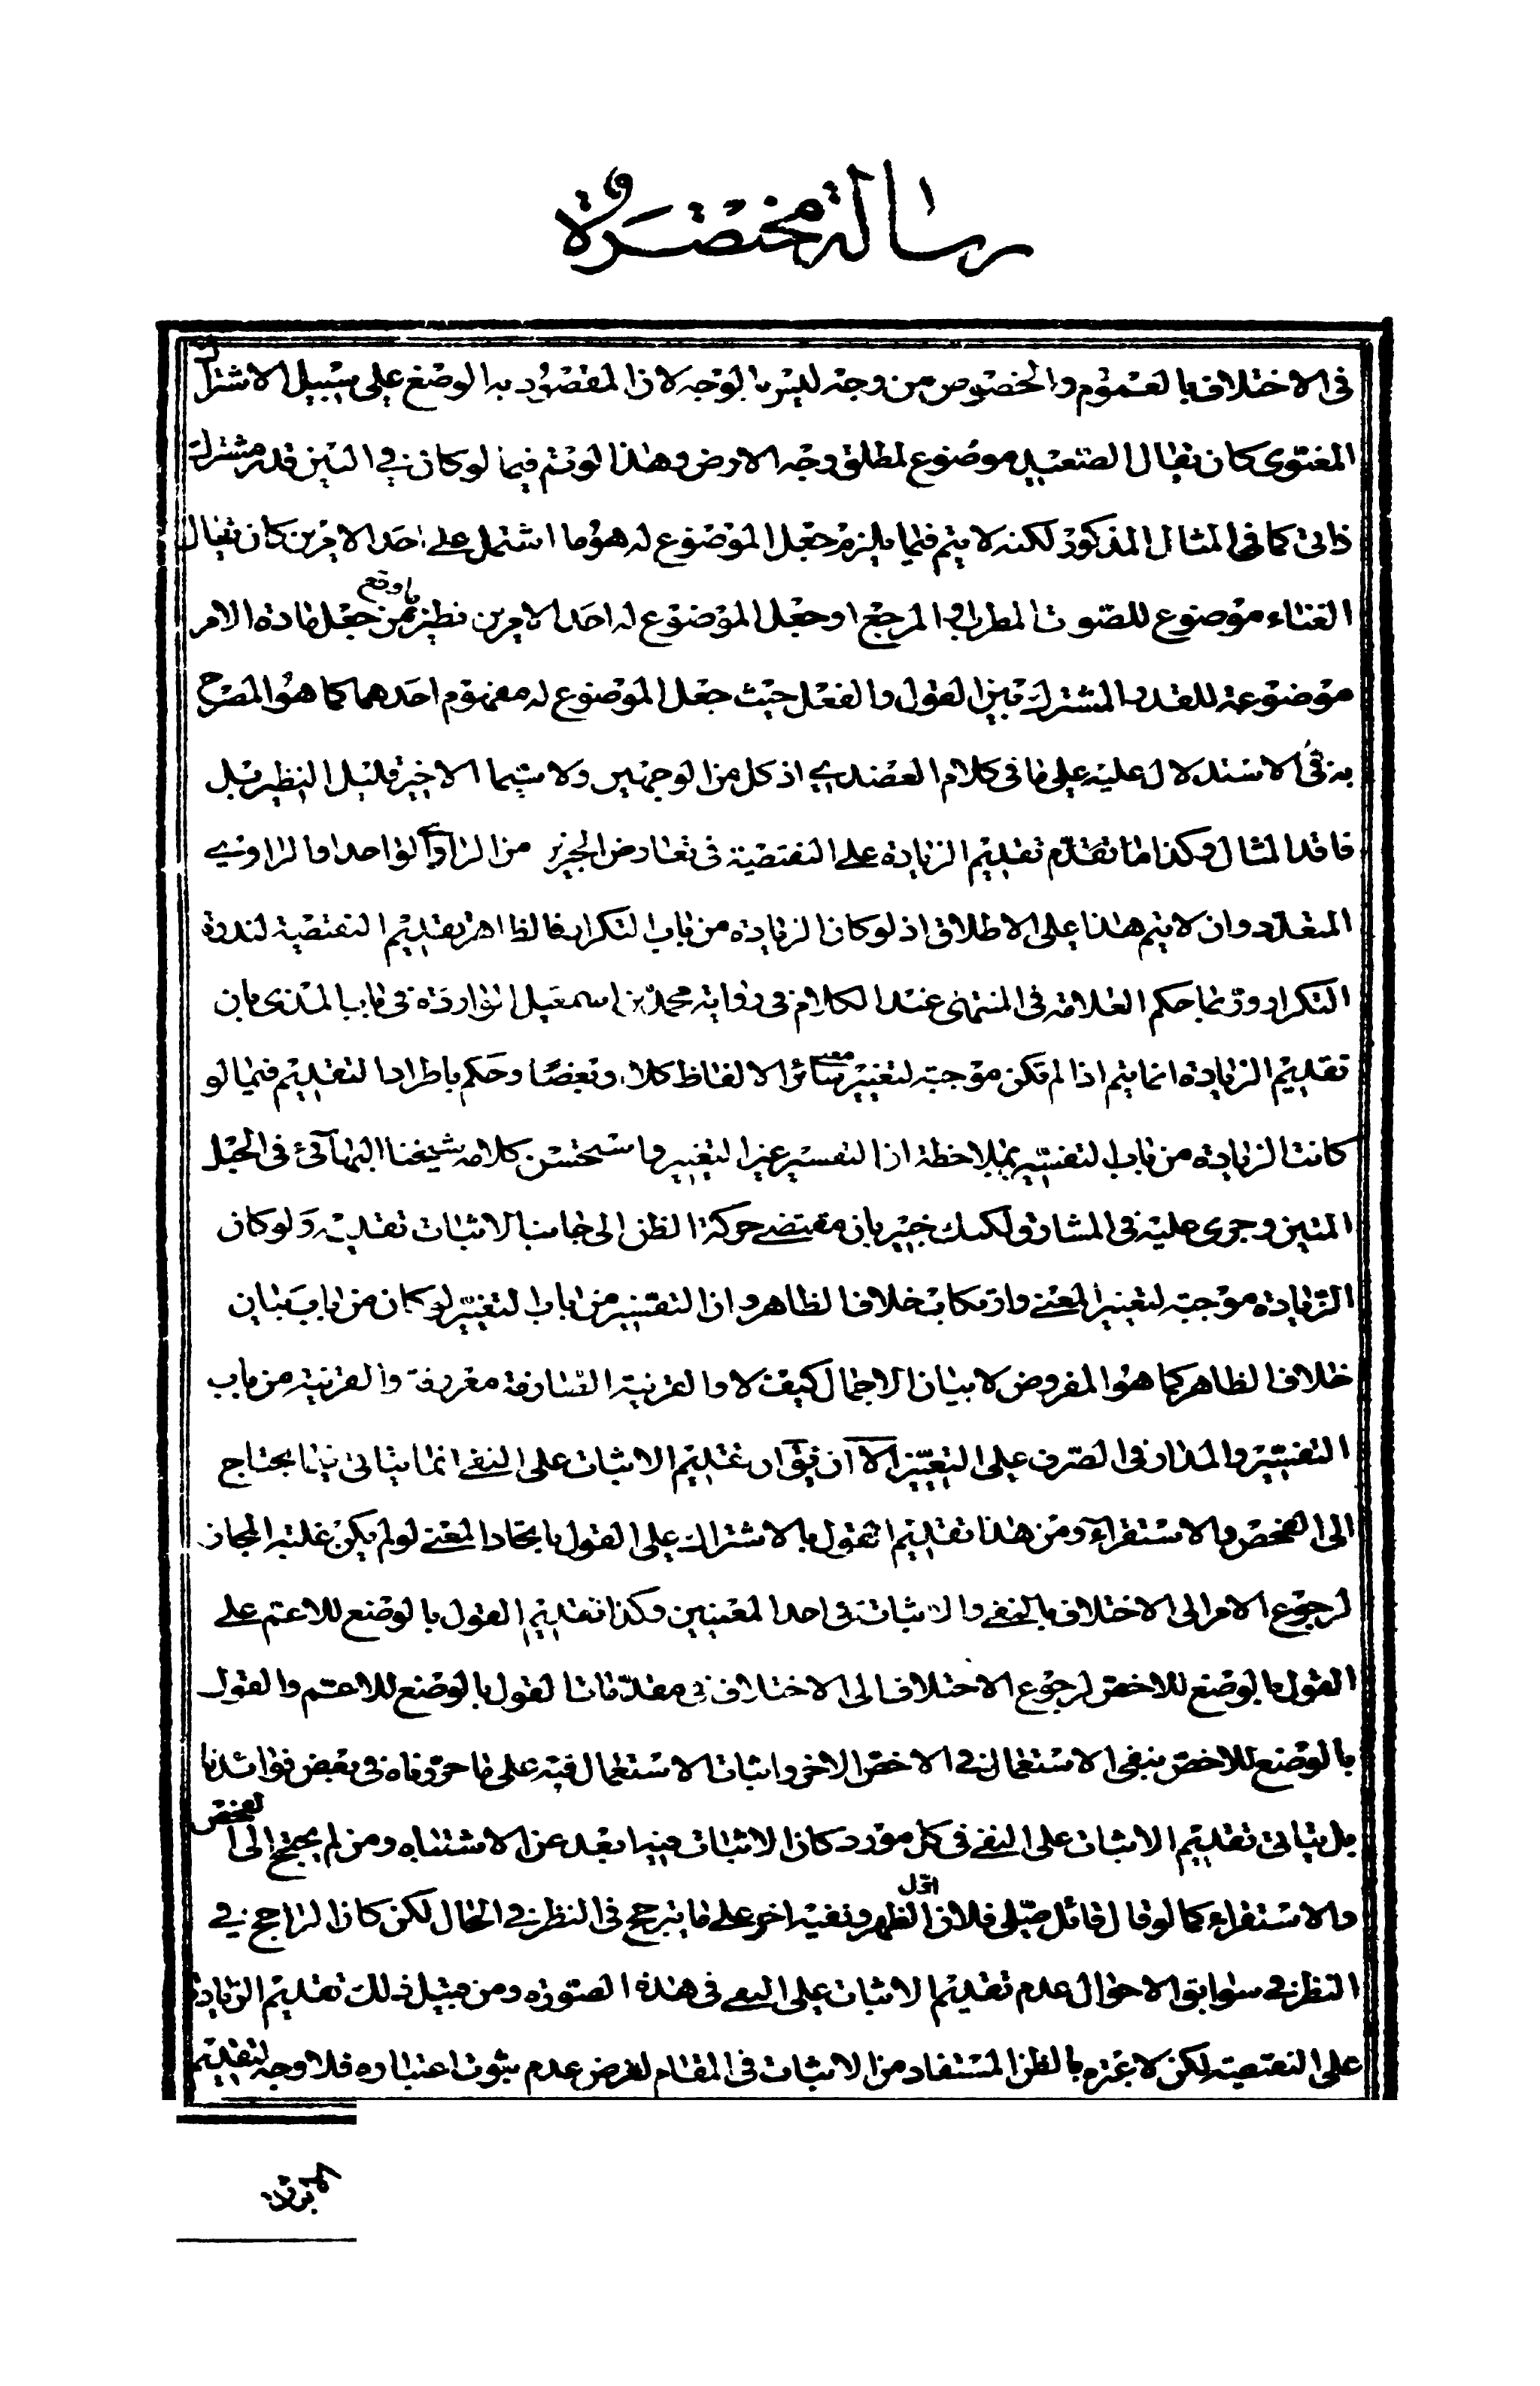 رسالة مختصرة
في الاختلاف بالعموم والخصوص من وجه ليس بالوجه لان المقصود به الوضع على سبيل الاشتراك
المعنوي كان يقال الصعيد موضوع لمطلق وجه الارض وهذا لو يتم فيما لو كان في البين قدر مشترك
ذاتي كما في المثال المذكور لكنه لا يتم فيما يلزم جعل الموضوع له هو ما اشتمل على احد الامرين كان يقال
الغناء موضوع للصوت المطرب او المرجع او جعل الموضوع له احد الامرين نظير ما وقع ممن جعل مادة الامر
موضوعة للقدر المشترك بين القول والفعل حيث جعل الموضوع له مفهوم احدهما كما هو المصرح
به في الاستدلال عليه على ما في كلام العضدي اذ كل من الوجهين ولا سيما الاخير قليل النظير بل
فاقد المثال وكذا ما تقدم تقديم الزيادة على النقيصة في تعارض الخبرين من الراوي الواحد او الراوي
المتعدد وان لا يتم هذا على الاطلاق اذ لو كان الزيادة من باب التكرار فالظاهر تقديم النقيصة لندرة
التكرار وربما حكم العلامة في المنتهى عند الكلام في رواية محمد بن اسمعيل الواردة في باب المذي بان
تقديم الزيادة انما يتم اذا لم تكن موجبة لتغيير معنى سائر الالفاظ كلا وبعضا وحكم باطراد التقديم فيما لو
كانت الزيادة من باب التفسير بملاحظة ان التفسير غير التغيير واستحسن كلامه شيخنا البهائي في الحبل
المتين وجرى عليه في المشارق ولكنك خبير بان مقتضى حركة الظن الى جانب الاثبات تقديمه ولو كان
الزيادة موجبة لتغيير المعنى وارتكاب خلاف الظاهر وان التفسير من باب التغيير لو كان من باب بيان
خلاف الظاهر كما هو المفروض لا بيان الاجمال كيف لا والقرينة الصارفة معروفة والقرينة من باب
التفسير والمدار في الصرف على التغيير الا ان يقال ان تقديم الاثبات على النفي انما يتاتى فيما يحتاج
الى الفحص والاستقراء ومن هذا تقديم القول بالاشتراك على القول باتحاد المعنى لو لم يكن غلبة المجاز
لرجوع الامر الى الاختلاف بالنفي والاثبات في احد المعنيين وكذا تقديم القول بالوضع للاعم على
القول بالوضع للاخص لرجوع الاختلاف الى الاختلاف في مقدمات القول بالوضع للاعم والقول
بالوضع للاخص بنفي الاستعمال في الاخص الاخر واثبات الاستعمال فيه على ما حررناه في بعض فوائدنا
بل يتاتى تقديم الاثبات على النفي في كل مورد كان الاثبات فيه ابعد عن الاشتباه ومن لم يحتج الى الفحص
والاستقراء كما لو قال قائل صلى فلان اول الظهر ونفيه اخر على ما يترجح في النظر في الحال لكن كان الراجح في
النظر في سوابق الاحوال عدم تقديم الاثبات على النفي في هذه الصورة ومن قبيل ذلك تقديم الزيادة
على النقيصة لكن لا عبرة بالظن المستفاد من الاثبات في المقام لفرض عدم ثبوت اعتباره فلا وجه لتقديم